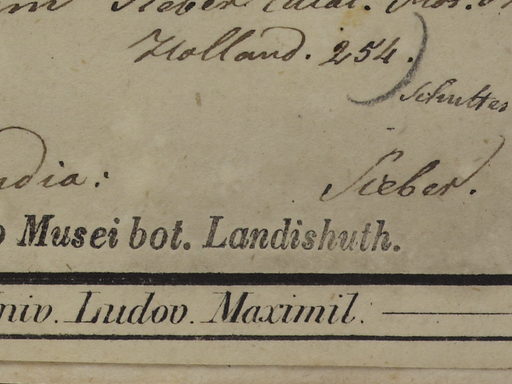 Sieber
Holland. 254.)
Schultes
Sieber.
Musei bot. Landishuth.
Univ. Ludov. Maximil.